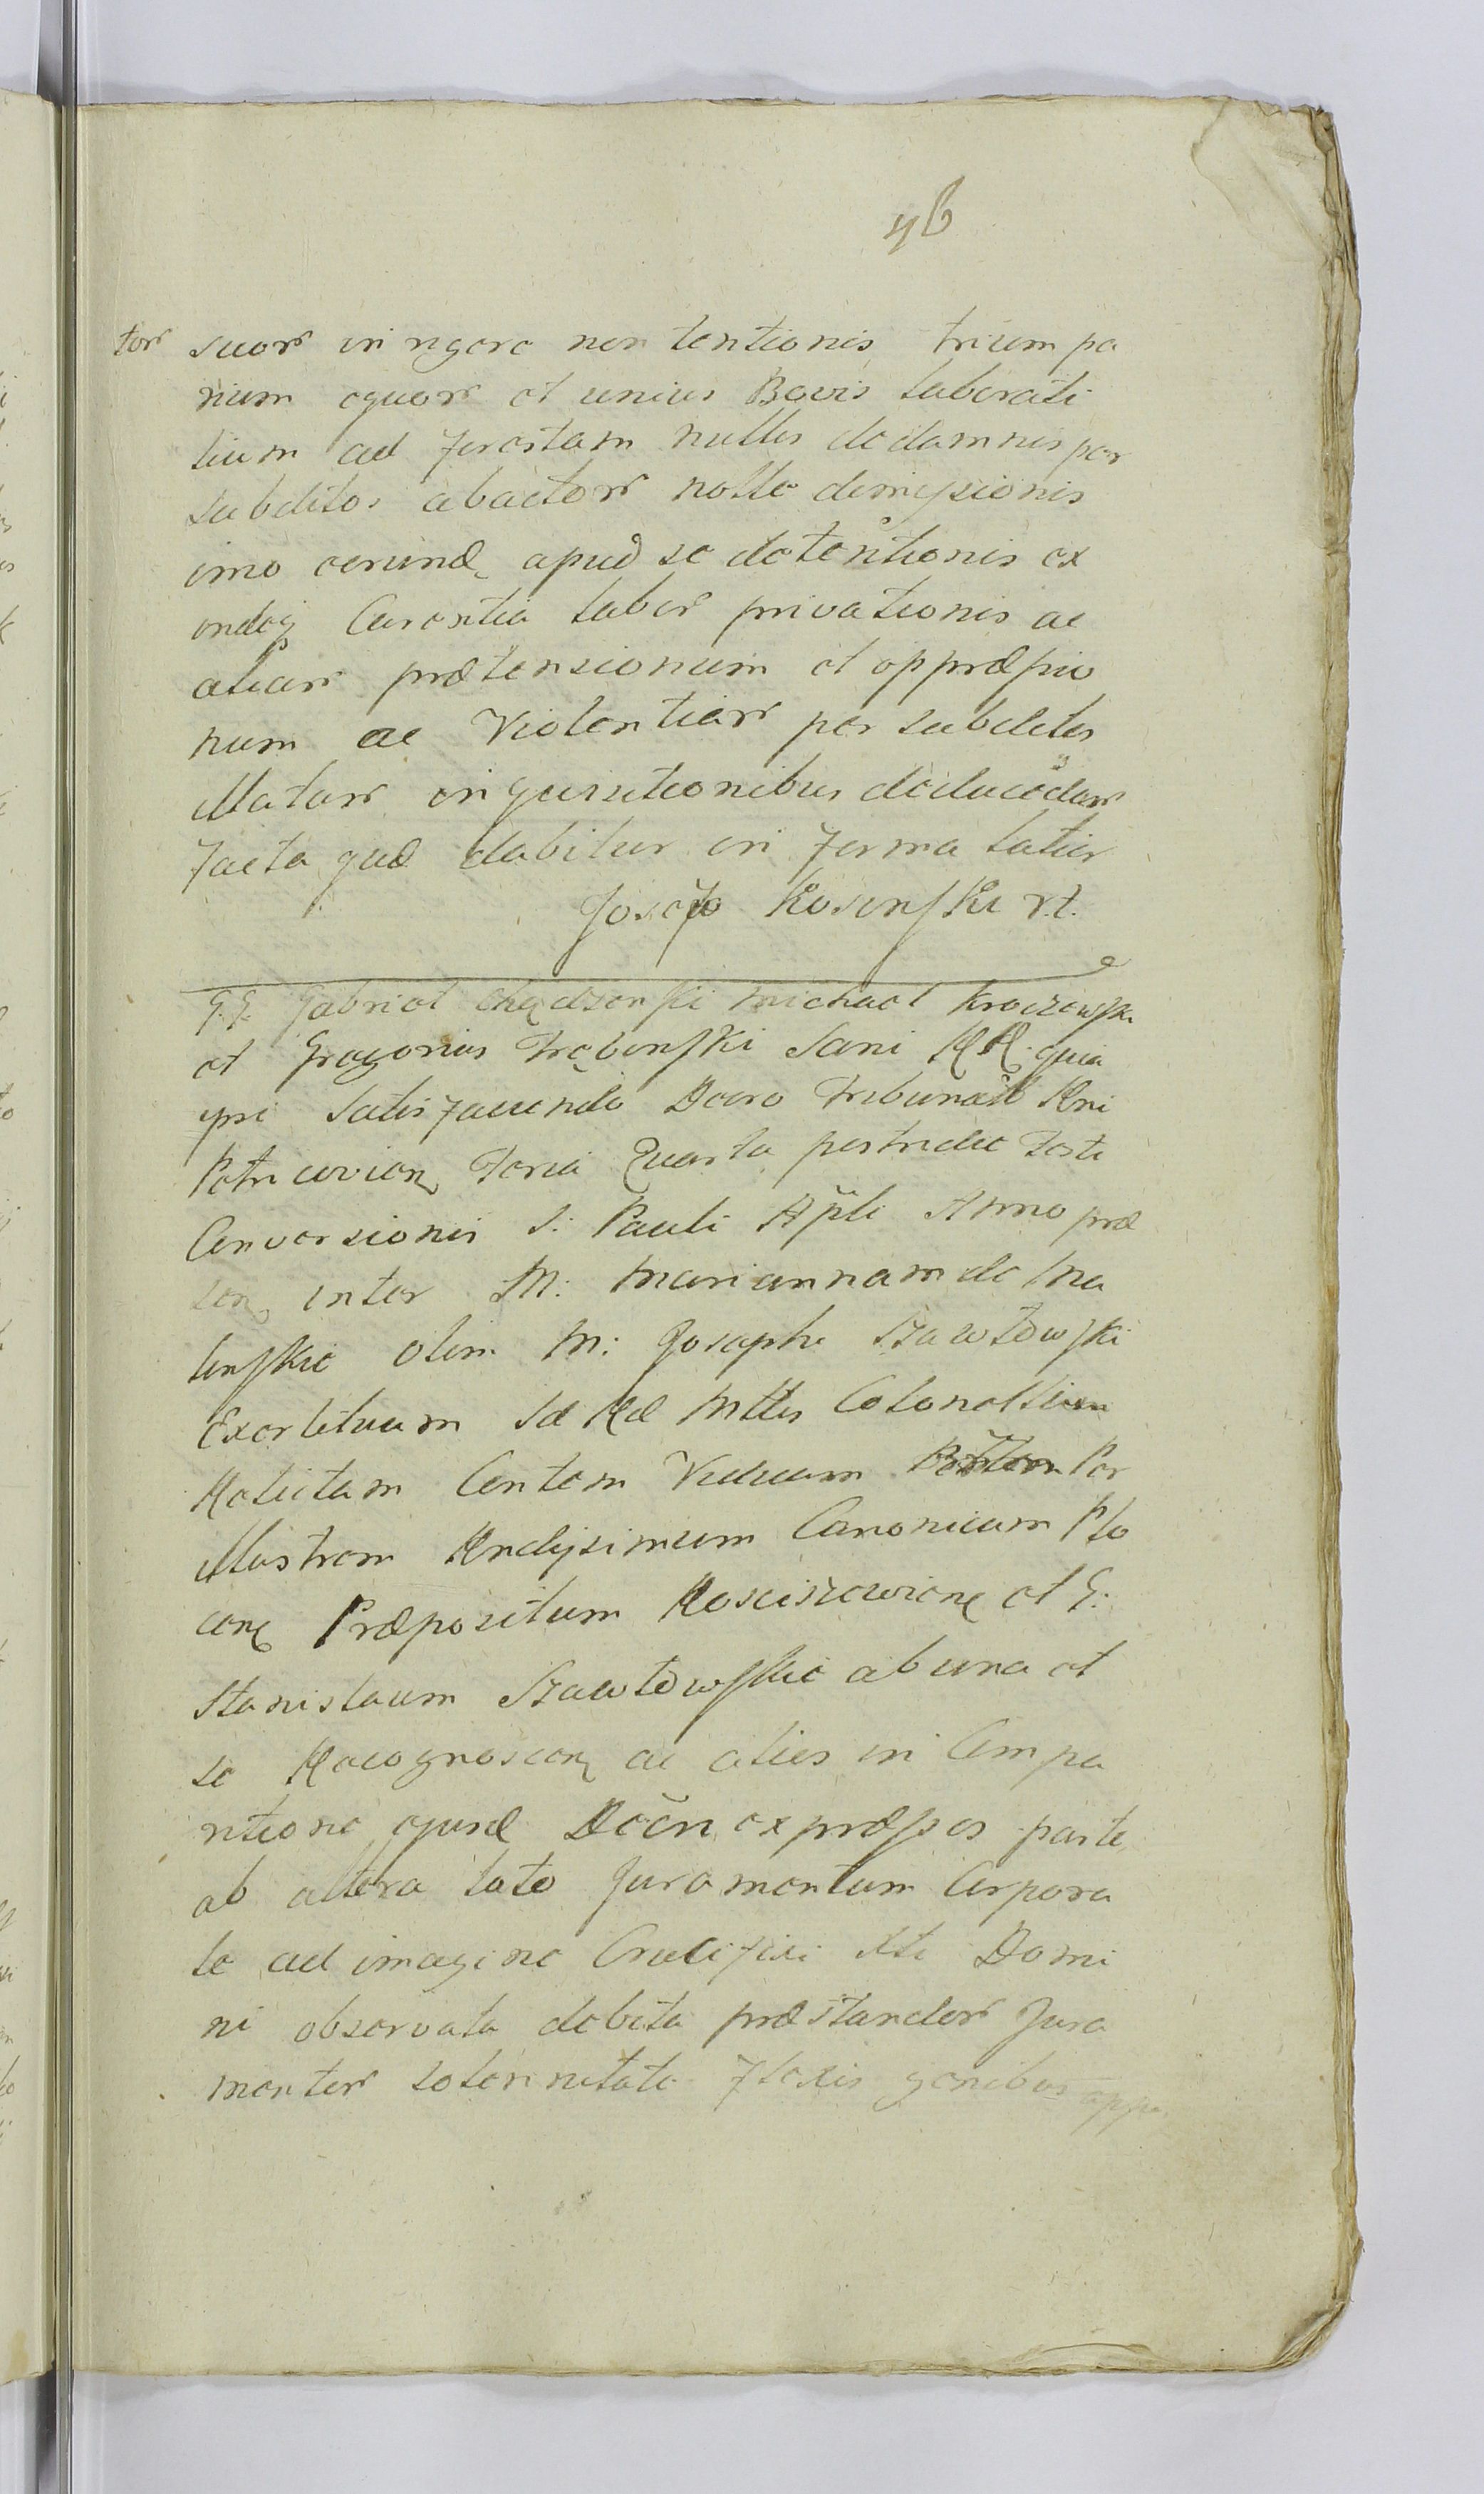 46
tor suor in rigore non tentionis trium pa
rium equor et unius Bovis laborati
lium ad forestam nullis de damnis per
subditos abactor nolle demissionis
imo eorund apud se detentionis ex
endeq Carentia labor privationis ac
aliar prætensionum et oppressio
num ac Violentiar per subditos
illatar inquisitionibus deducedar
facta quæ dabitur in forma latior
Joseph Kosinski rt.
G.G. Gabriel Chądzyński Michael Kraczewski
et Gregorius Trębinski Sani RR. quia
ipsi satisfaciendo Decro Tribunalis Rni
Petricovien Feria Quarta postridie Festi
Conversionis S: Pauli Apli Anno præ
sen inter M: Mariannam de Ma
linskie olim M: Josephi Szawłowski
Exercituum Sæ Ræ Mttis Colonelli
Relictam Conten Viduam Per
illustrem Rndissimum Canonicum Plo
cen Præpositum Kosciszewicen et G:
Stanislaum Szawłowskie ab una et
se Recognoscen ac alios in Compa
ritione ejusd Decri expressos parte
ab altera lato Juramentum Corpora
le ad imagine Crucifixi Xti Domi
ni observata debita præstandor Jura
mentor solennitate flexis genibus